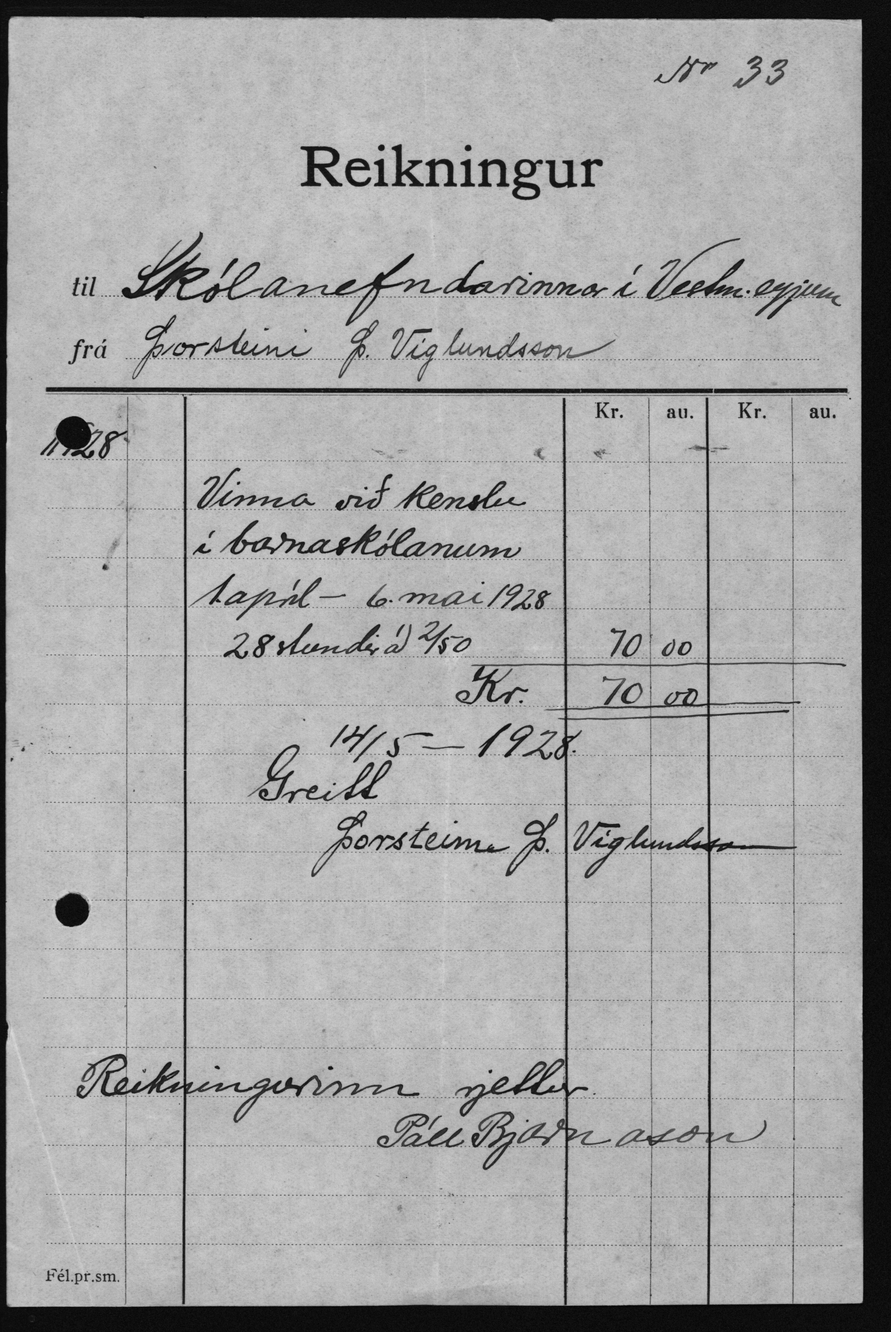 Nr 33
Reikningur
til Skólanefndarinnar í Vestm.eyjum
frá Þorsteini Þ. Víglundsson
Kr. au. Kr. au.
1928
Vinna við kenslu
í barnaskólanum
1 apríl – 6. maí 1928
28 stundir á 2/50 70 00
Kr. 70 00
14/5 – 1928.
Greitt
Þorsteinn Þ. Víglundsson
Reikningurinn rjettur.
Páll Bjarnason
Fél.pr.sm.